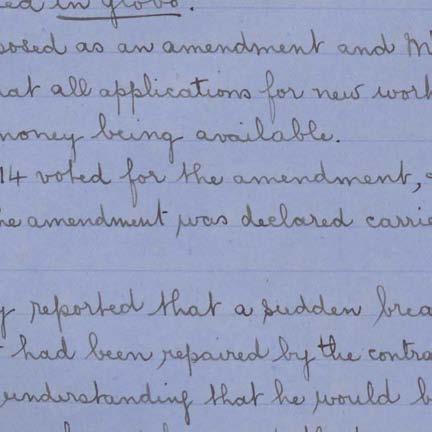 ed in globo.
posed as an amendment and M
hat all applications for new work
money being available.
14 voted for the amendment,
he amendment was declared carrie
y reported that a sudden brea
had been repaired by the contra
understanding that he would b